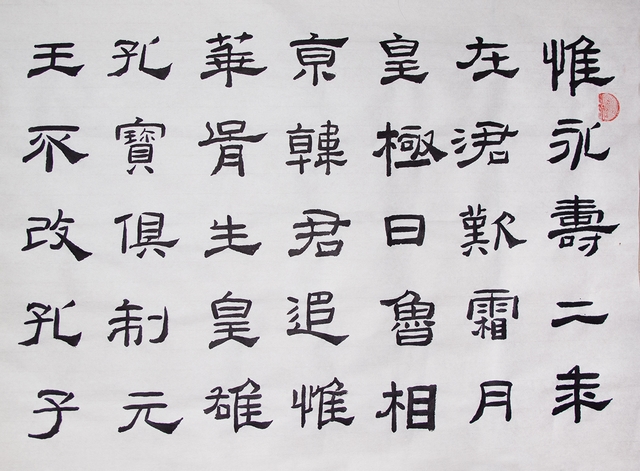 惟永壽二年
在涒歎霜月
皇極日魯相
京韓君追惟
華胥生皇雄
孔寶俱制元
王不改孔子